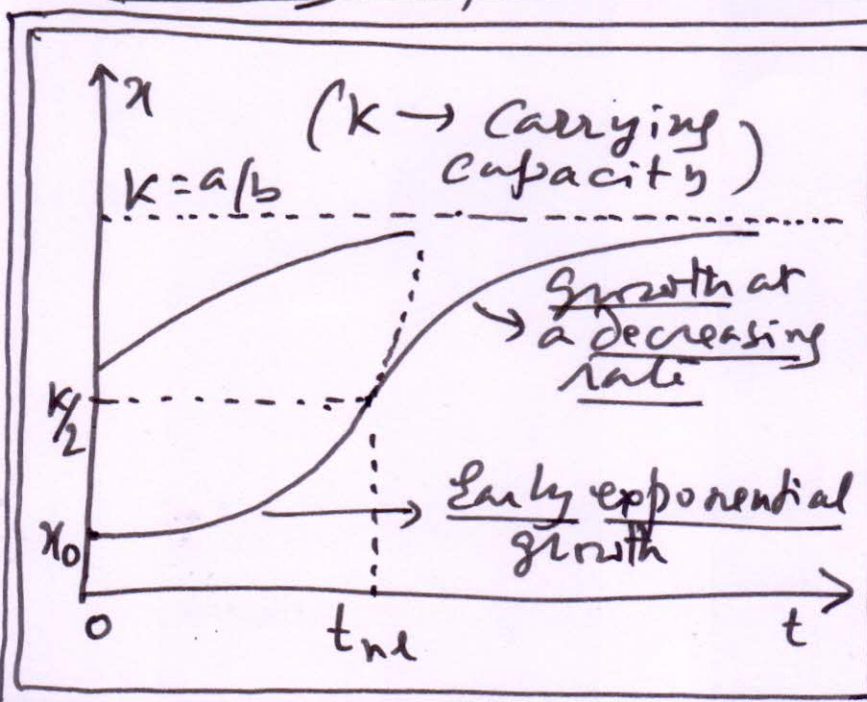 x
(K → Carrying
capacity)
K = a/b
Growth at
a decreasing
rate
K/2
Early exponential
growth
x0
0
tnl
t